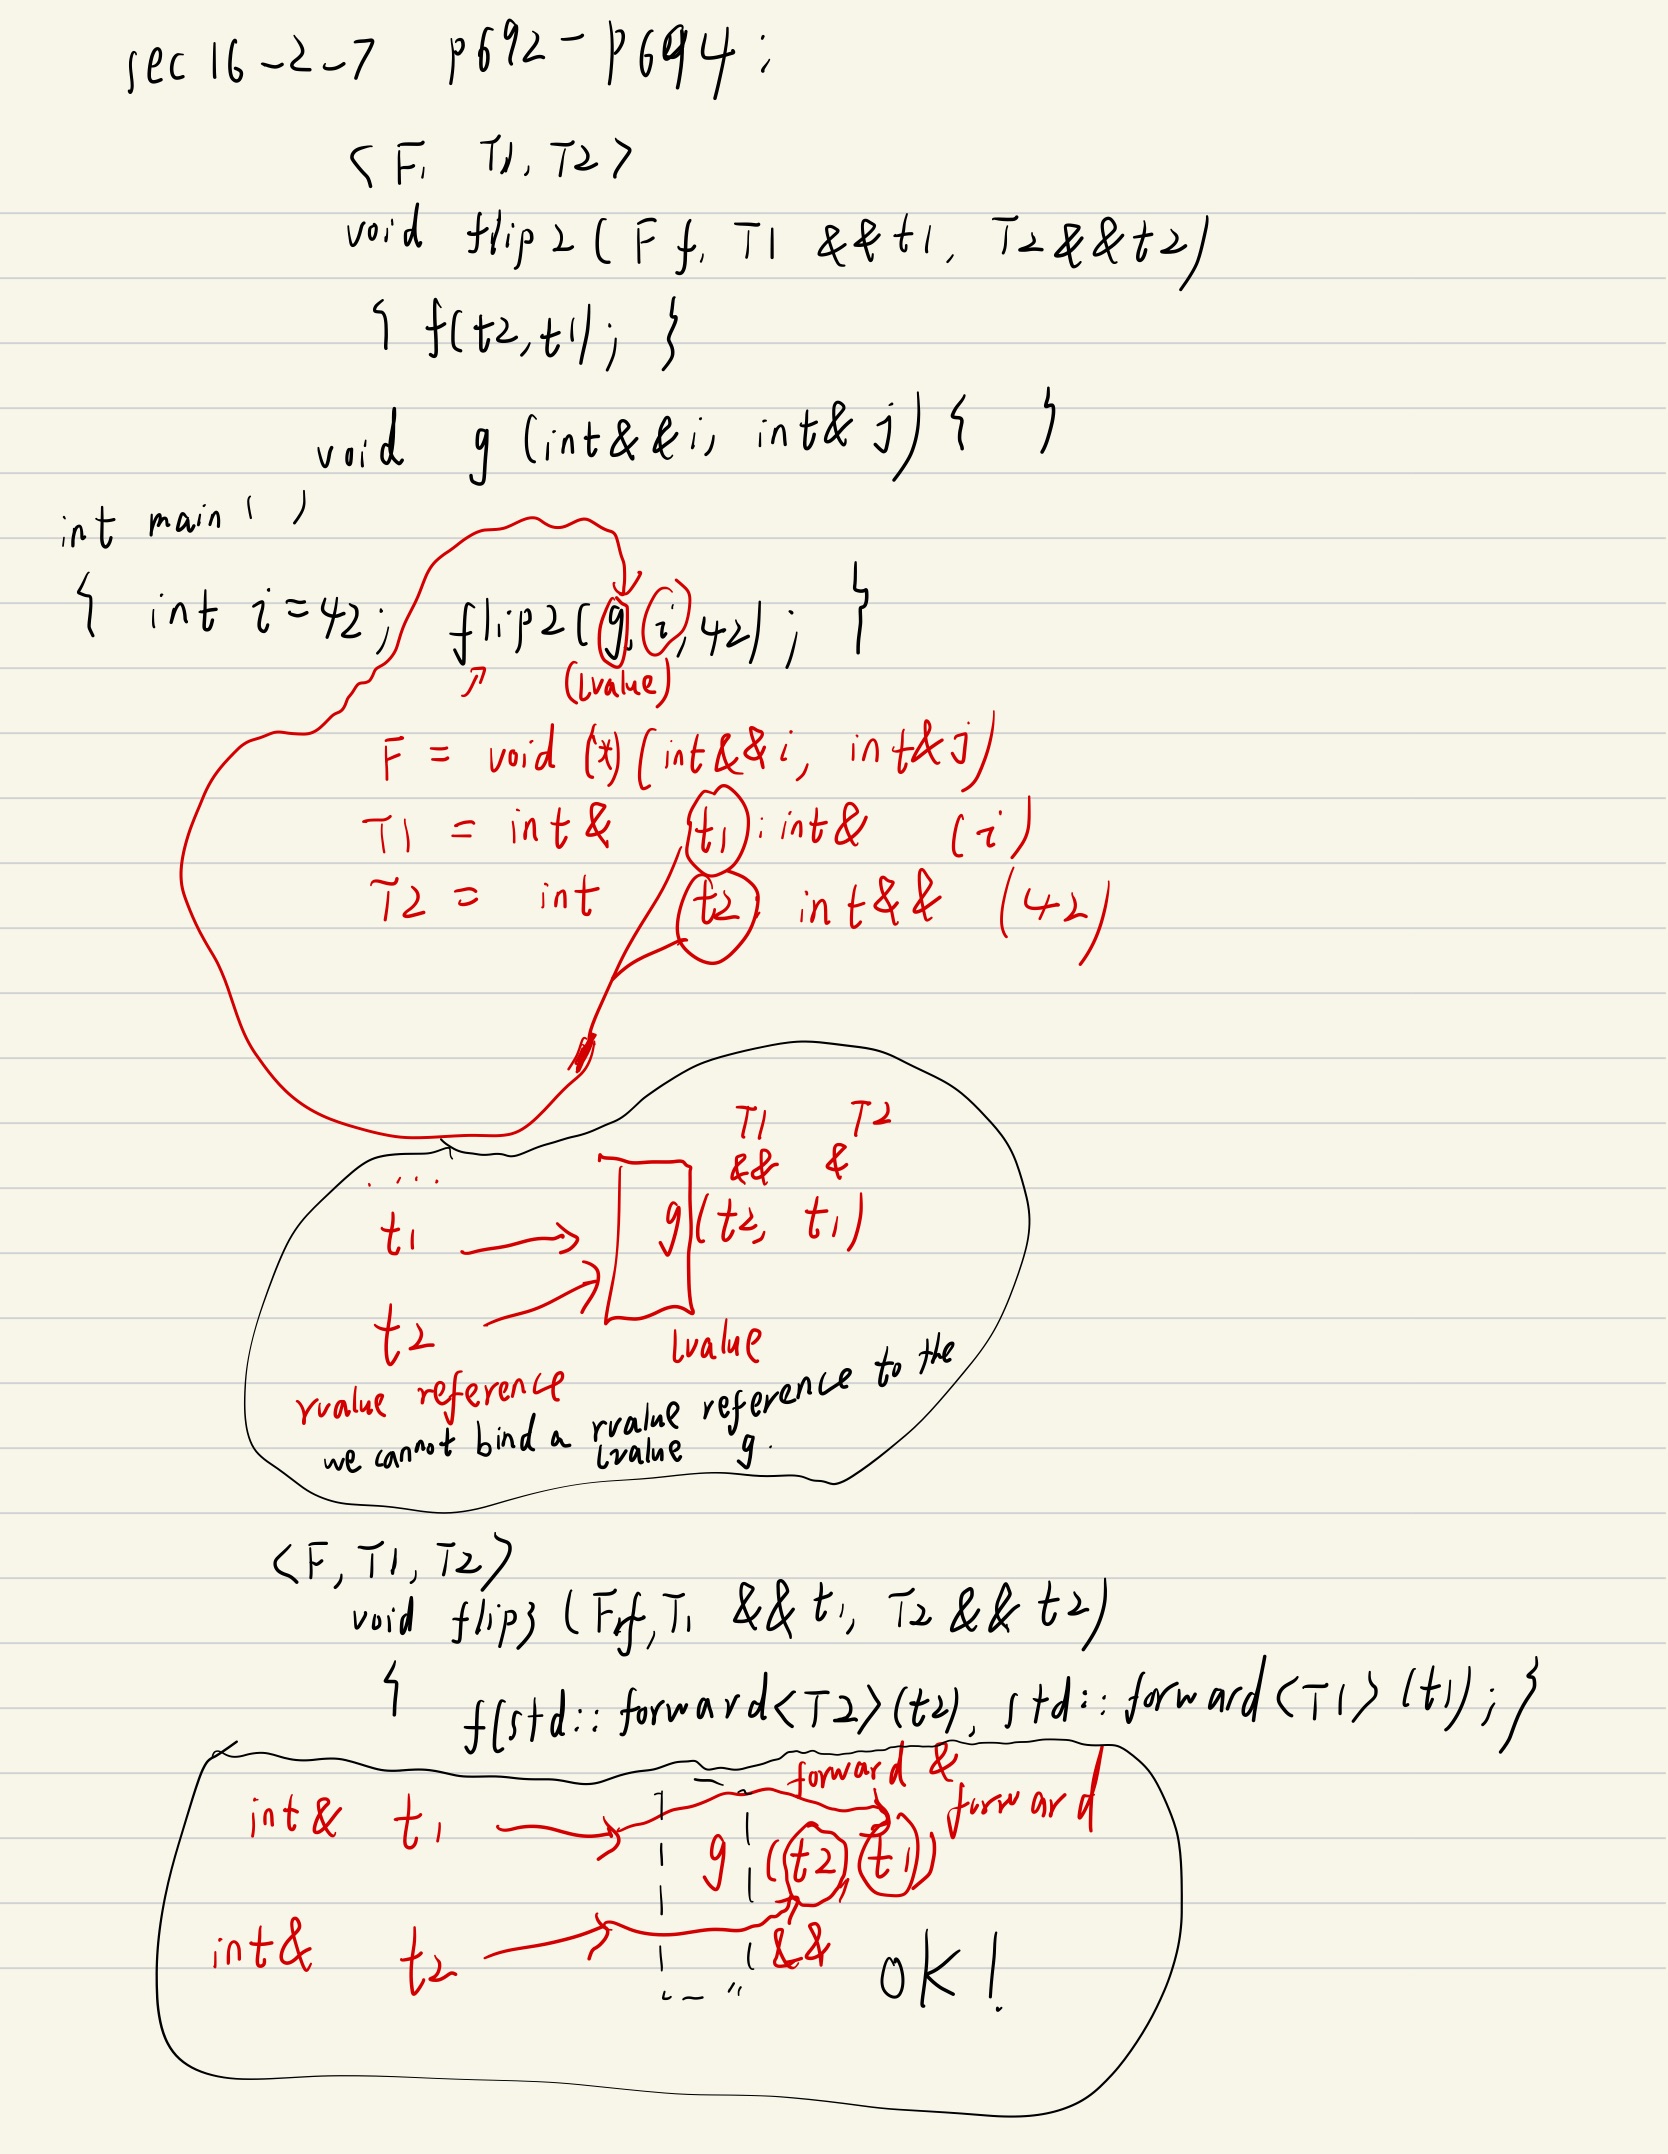 sec 16-2-7 p692-p694;
<F, T1, T2>
void flip2(F f, T1 &&t1, T2&&t2)
{ f(t2,t1); }
void g (int&&i, int& j) { }
int main ( )
{ int i=42; flip2(g,i,42); }
(lvalue)
F = void (*) (int&&i, int&j)
T1 = int& t1 : int& (i)
T2 = int t2 int&& (42)
T1 T2
&& &
....
t1 g(t2, t1)
t2
lvalue
rvalue reference
we cannot bind a rvalue reference to the
lvalue g.
<F, T1, T2>
void flip3 (F f, T1 && t1, T2 && t2)
{ f(std::forward<T2>(t2), std::forward<T1>(t1); }
forward &
forward
int& t1
g (t2, t1)
int& t2 &&
OK!